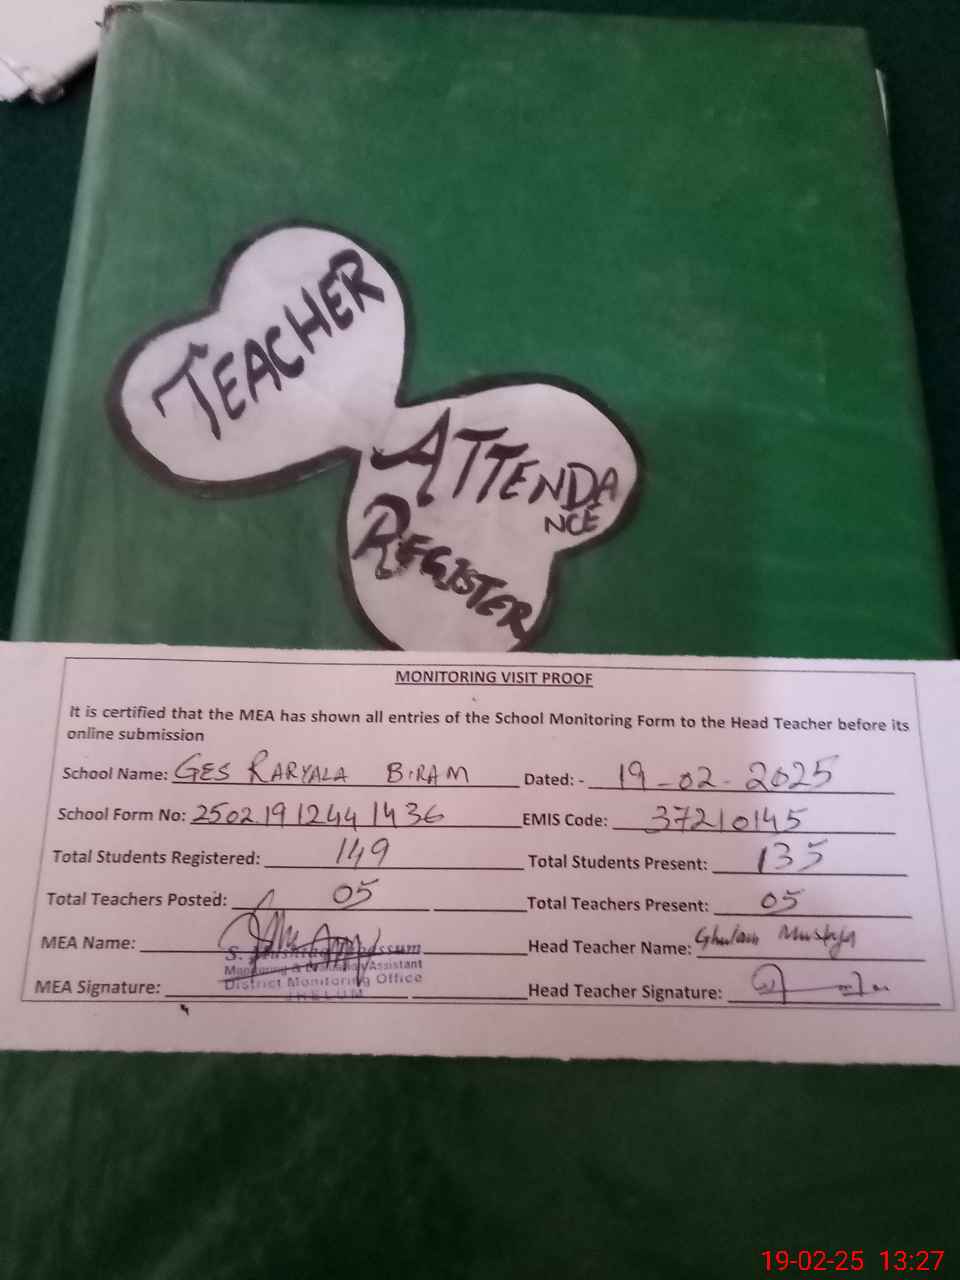 TEACHER
ATTENDA
NCE
REGISTER
MONITORING VISIT PROOF
It is certified that the MEA has shown all entries of the School Monitoring Form to the Head Teacher before its
online submission
School Name: GES RARYALA BIRAM Dated: - 19-02-2025
School Form No: 2502191244 1436 EMIS Code: 37210145
Total Students Registered: 149 Total Students Present: 135
Total Teachers Posted: 05 Total Teachers Present: 05
MEA Name: S. Head Teacher Name: Ghulam Mustafa
Monitoring & Evaluation Assistant
District Monitoring Office
MEA Signature: JHELUM Head Teacher Signature:
19-02-25 13:27